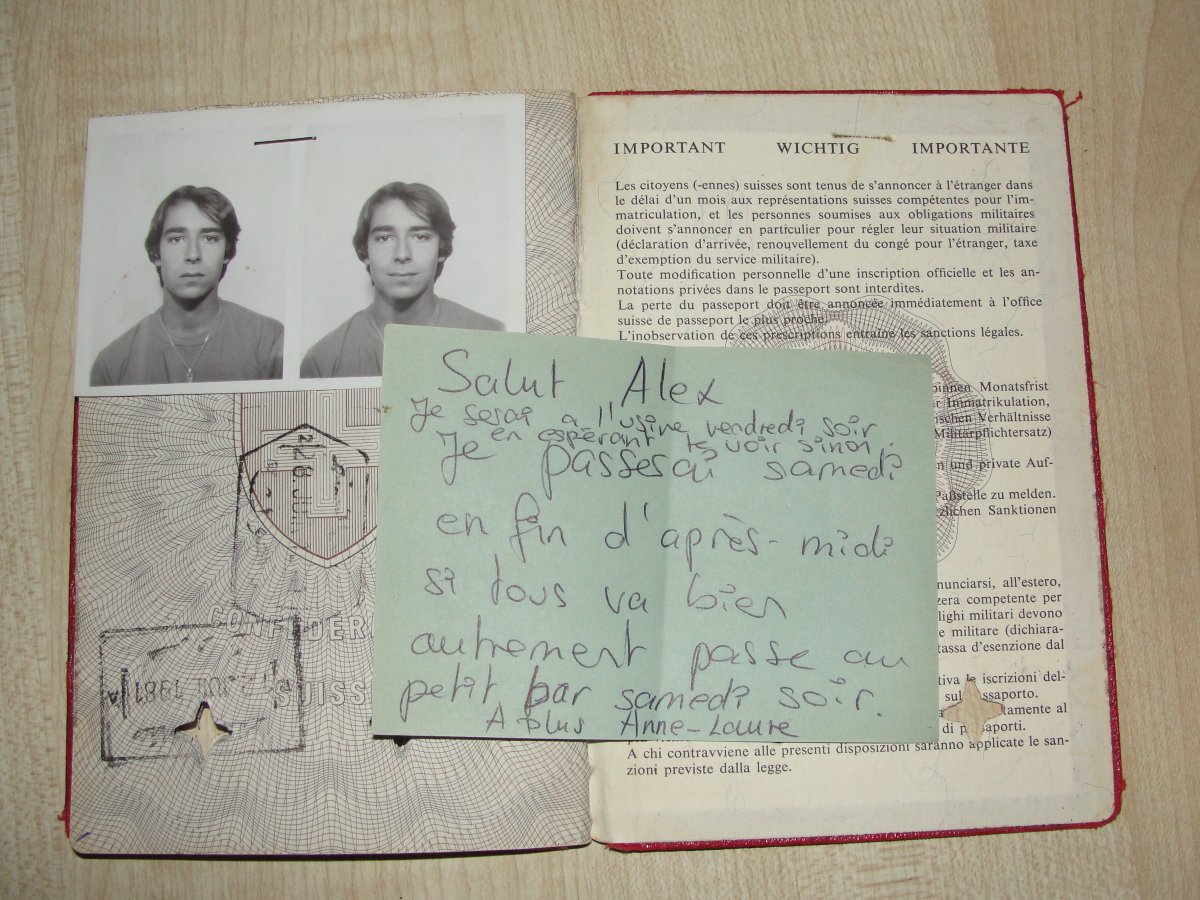 Salut Alex
Je serai a l'usine vendredi soir
en espérant te voir sinon.
Je passerai samedi
en fin d'après-midi
si tous va bien
autrement passe au
petit bar samedi soir.
A plus Anne-Laure
CONFEDER
SUISS
IMPORTANT WICHTIG IMPORTANTE
Les citoyens (-ennes) suisses sont tenus de s'annoncer à l'étranger dans
le délai d'un mois aux représentations suisses compétentes pour l'im-
matriculation, et les personnes soumises aux obligations militaires
doivent s'annoncer en particulier pour régler leur situation militaire
(déclaration d'arrivée, renouvellement du congé pour l'étranger, taxe
d'exemption du service militaire).
Toute modification personnelle d'une inscription officielle et les an-
notations privées dans le passeport sont interdites.
La perte du passeport doit être annoncée immédiatement à l'office
suisse de passeport le plus proche.
L'inobservation de ces prescriptions entraîne les sanctions légales.
binnen Monatsfrist
r Immatrikulation,
ischen Verhältnisse
Militärpflichtersatz)
n und private Auf-
Paßstelle zu melden.
zlichen Sanktionen
nunciarsi, all'estero,
zera competente per
lighi militari devono
e militare (dichiara-
tassa d'esenzione dal
tiva le iscrizioni del-
sul passaporto.
tamente al
di passaporti.
A chi contravviene alle presenti disposizioni saranno applicate le san-
zioni previste dalla legge.